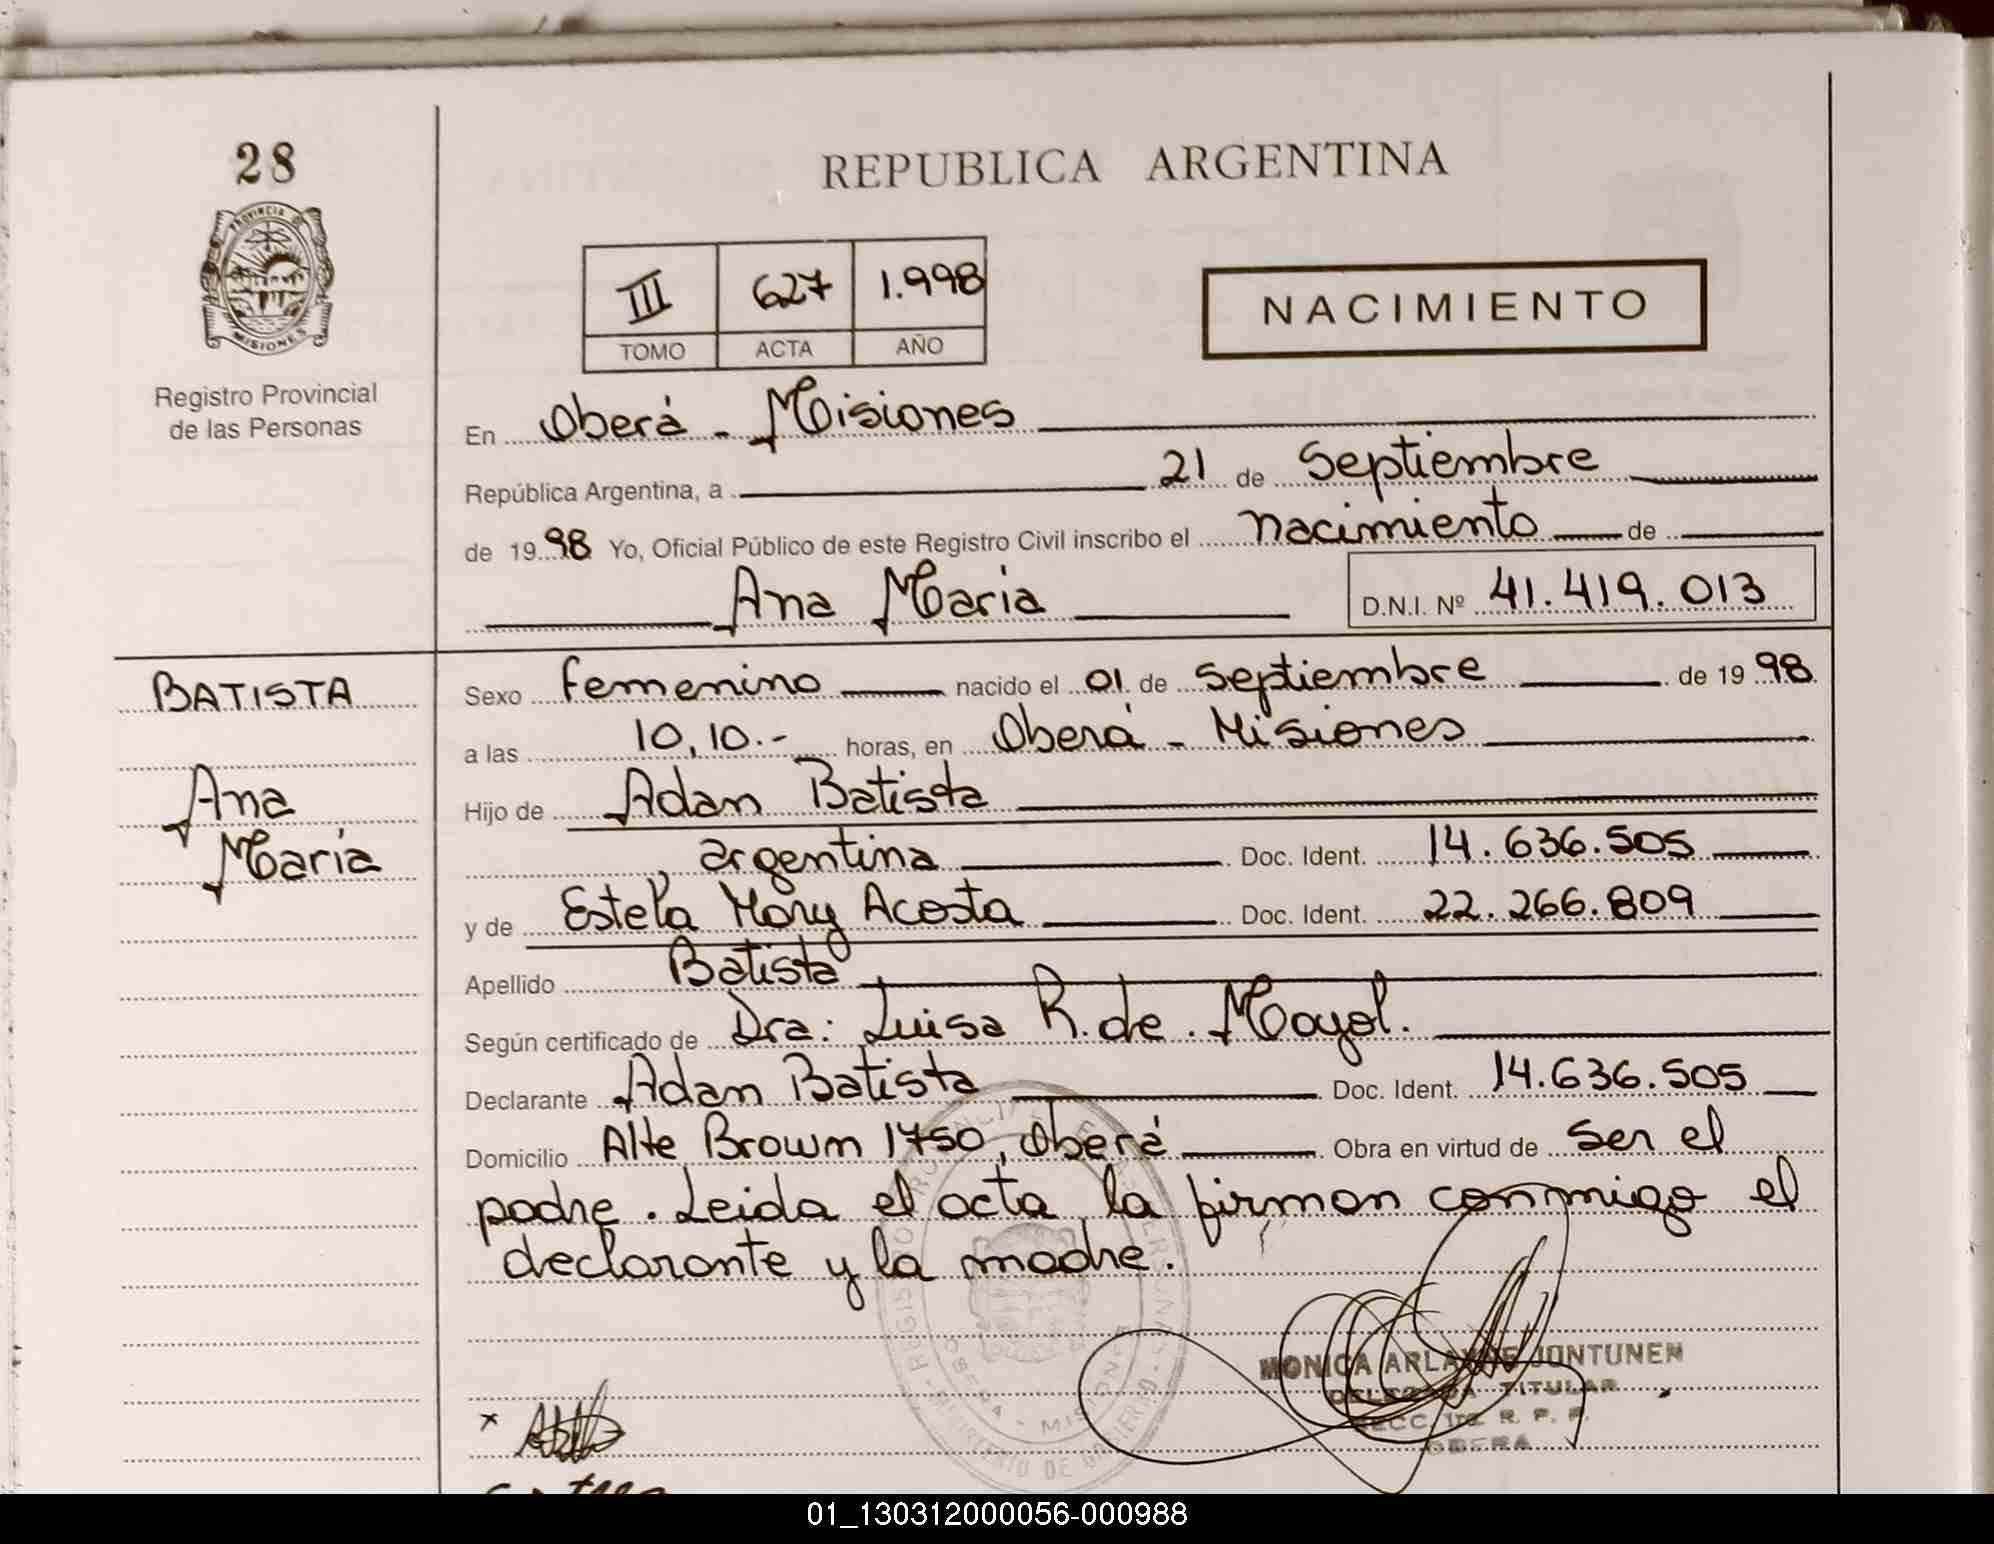 28
PROVINCIA DE
MISIONES
Registro Provincial
de las Personas
REPUBLICA ARGENTINA
III 627 1.998
TOMO ACTA AÑO
NACIMIENTO
En Oberá - Misiones
República Argentina, a 21 de Septiembre
de 1998 Yo, Oficial Público de este Registro Civil inscribo el nacimiento de
Ana Maria D.N.I. Nº 41.419.013
BATISTA
Ana
María
Sexo femenino nacido el 01 de Septiembre de 1998
a las 10,10.- horas, en Oberá - Misiones
Hijo de Adan Batista
, argentina Doc. Ident. 14.636.505
y de Estela Mary Acosta Doc. Ident. 22.266.809
Apellido Batista
Según certificado de Dra: Luisa R. de Mayol.
Declarante Adan Batista Doc. Ident. 14.636.505
Domicilio Alte Brown 1750, Oberá Obra en virtud de ser el
padre. Leida el acta la firman conmigo el
declarante y la madre.
MONICA JONTUNEN
TITULAR
R. P. P.
OBERA
OBERA - MISIONES
MINISTERIO DE GOBIERNO
x
01_130312000056-000988